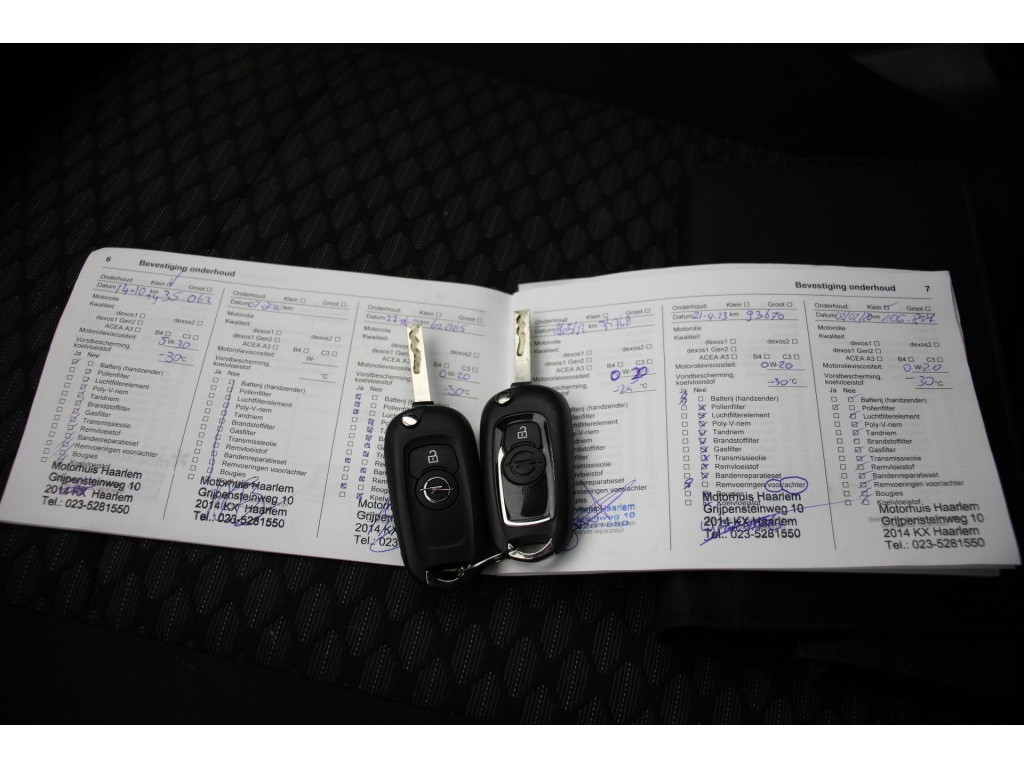 6 Bevestiging onderhoud
Onderhoud: Klein Groot
Datum 14-10 km 35 063
Motorolie
Kwaliteit:
dexos1 dexos2
dexos1 Gen2
ACEA A3 B4 C3
Motorolieviscositeit: 5 W 30
Vorstbescherming, koelvloeistof -30 °C
Ja Nee
Batterij (handzender)
Pollenfilter
Luchtfilterelement
Poly-V-riem
Tandriem
Brandstoffilter
Gasfilter
Transmissieolie
Remvloeistof
Bandenreparatieset
Remvoeringen voor/achter
Bougies
Koelvloeistof
Motorhuis Haarlem
Grijpensteinweg 10
2014 KX Haarlem
Tel.: 023-5281550
Onderhoud: Klein Groot
Datum km
Motorolie
Kwaliteit:
dexos1 dexos2
dexos1 Gen2
ACEA A3 B4 C3
Motorolieviscositeit: W-
Vorstbescherming, koelvloeistof °C
Ja Nee
Batterij (handzender)
Pollenfilter
Luchtfilterelement
Poly-V-riem
Tandriem
Brandstoffilter
Gasfilter
Transmissieolie
Remvloeistof
Bandenreparatieset
Remvoeringen voor/achter
Bougies
Motorhuis Haarlem
Grijpensteinweg 10
2014 KX Haarlem
Tel.: 023-5281550
Onderhoud:
Datum
Motorolie
Kwaliteit:
dexos1
dexos1 Gen2
ACEA A3
Motorolieviscositeit: 0 W 20
Vorstbescherming, koelvloeistof -30 °C
Ja Nee
Batterij
Pollenfilter
Motorhuis
Grijpen
2014 K
Tel.: 023
Bevestiging onderhoud 7
Klein Groot
dexos1 dexos2
dexos1 Gen2
ACEA A3 B4 C3
Motorolieviscositeit: 0 W 30
Vorstbescherming, koelvloeistof -25 °C
(handzender)
Haarlem
Onderhoud: Klein Groot
Datum 21-4-23 km 93670
Motorolie
Kwaliteit:
dexos1 dexos2
dexos1 Gen2
ACEA A3 B4 C3
Motorolieviscositeit: 0 W 20
Vorstbescherming, koelvloeistof -30 °C
Ja Nee
Batterij (handzender)
Pollenfilter
Luchtfilterelement
Poly-V-riem
Tandriem
Brandstoffilter
Gasfilter
Transmissieolie
Remvloeistof
Bandenreparatieset
Remvoeringen voor/achter
Bougies
Motorhuis Haarlem
Grijpensteinweg 10
2014 KX Haarlem
Tel.: 023-5281550
Onderhoud: Klein Groot
Datum km
Motorolie
Kwaliteit:
dexos1 dexos2
dexos1 Gen2
ACEA A3 B4 C3
Motorolieviscositeit: 0 W 20
Vorstbescherming, koelvloeistof -30 °C
Ja Nee
Batterij (handzender)
Pollenfilter
Luchtfilterelement
Poly-V-riem
Tandriem
Brandstoffilter
Gasfilter
Transmissieolie
Remvloeistof
Bandenreparatieset
Remvoeringen voor/achter
Bougies
Koelvloeistof
Motorhuis Haarlem
Grijpensteinweg 10
2014 KX Haarlem
Tel.: 023-5281550